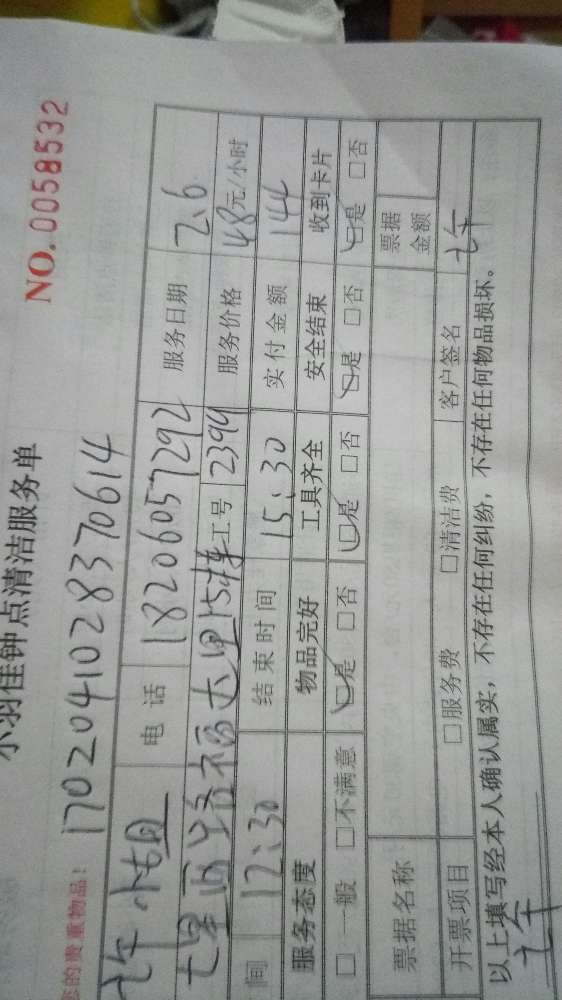 NO.0058532
小羽佳钟点清洁服务单
的贵重物品!
1702041028370614
许小姐 电话 18206057292 服务日期 2.6
七星西路福大里15栋 工号 2394 服务价格 48元/小时
间 12:30 结束时间 15:30 实付金额 144
服务态度 物品完好 工具齐全 安全结束 收到卡片
□一般 □不满意 □是 □否 □是 □否 □是 □否 □是 □否
票据名称 票据金额
开票项目 □服务费 □清洁费 客户签名 许
以上填写经本人确认属实,不存在任何纠纷,不存在任何物品损坏。
许